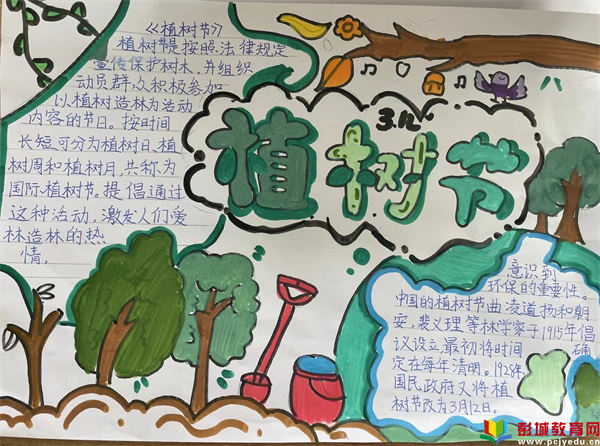 《植树节》
植树节是按照法律规定
宣传保护树木,并组织
动员群众积极参加
以植树造林为活动
内容的节日。按时间
长短可分为植树日、植
树周和植树月,共称为
国际植树节。提倡通过
这种活动,激发人们爱
林造林的热
情,
3.12
植树节
意识到
环保的重要性。
中国的植树节曲凌道扬和朝
安,裴义理等林学家于1915年倡
议设立,最初将时间确
定在每年清明。1928年
国民政府又将植
树节改为3月12日。
彭城教育网
www.pcjyedu.cn